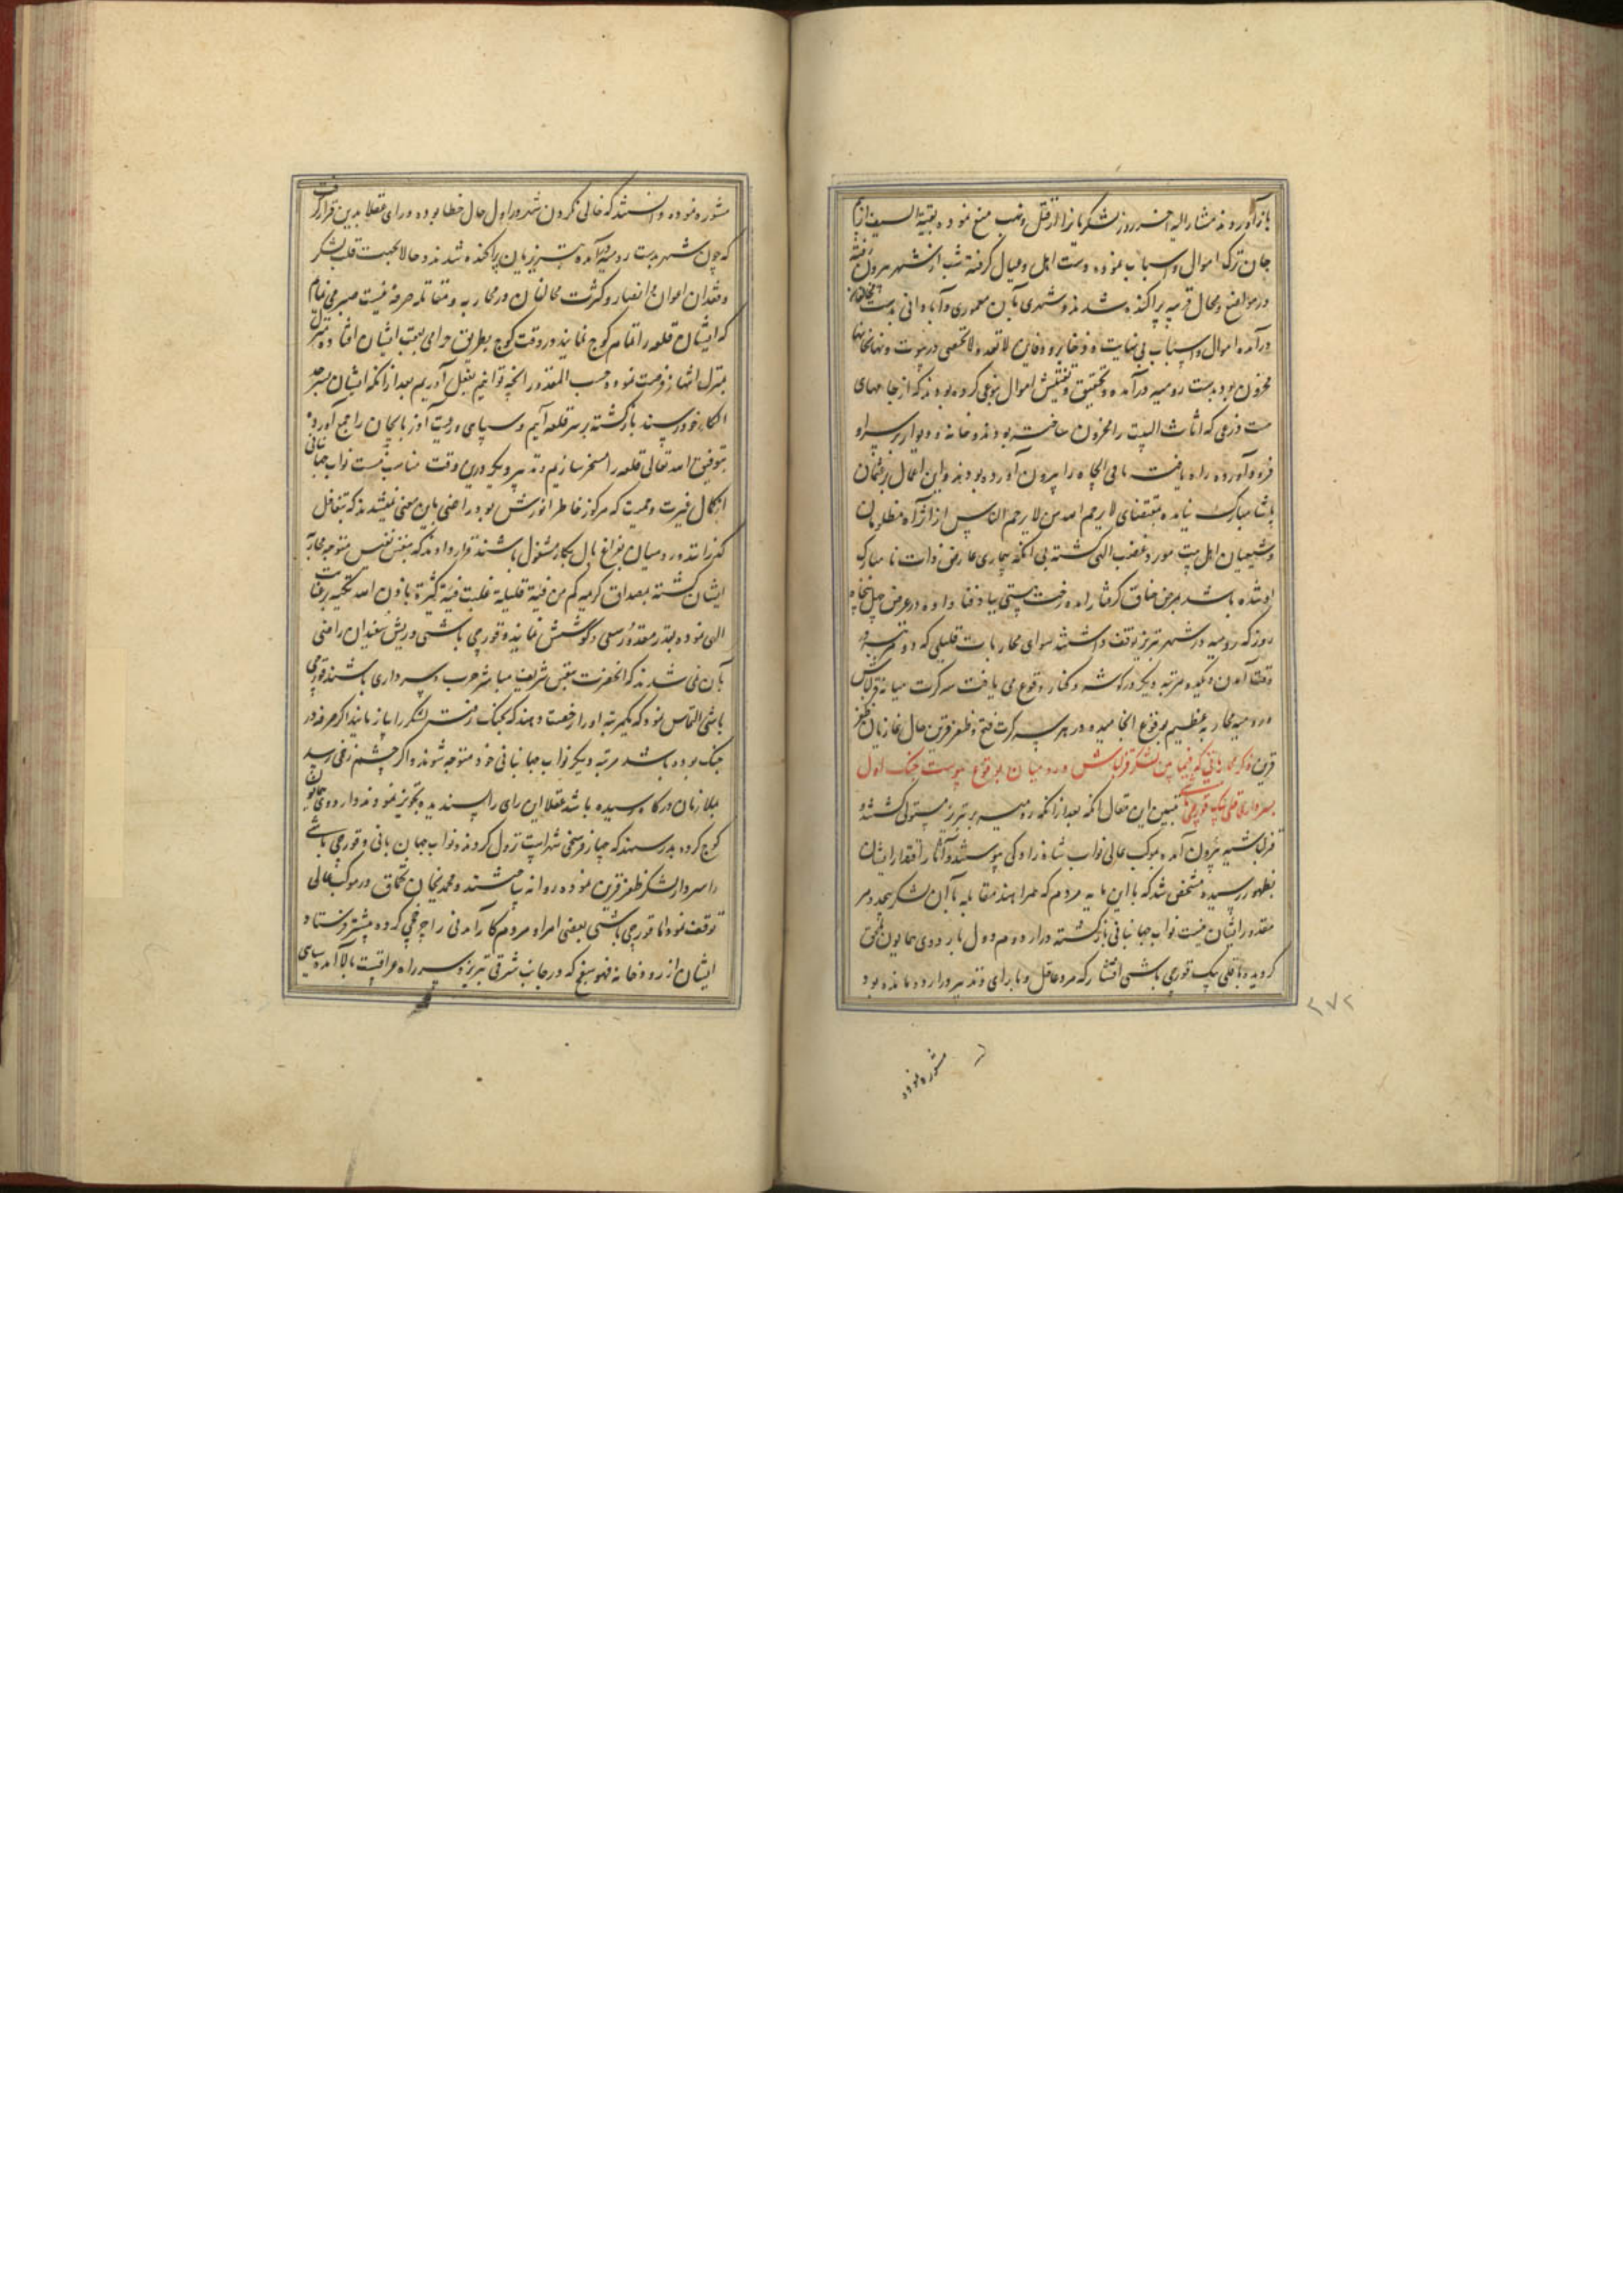 باز آوردند مشارالیه آخر روز لشکریانرا از قتل و نهب منع نموده بقیة السیف از بیم
جان ترک اموال و اسباب نموده دست اهل و عیال گرفته شب از شهر بیرون رفته
در مواضع و محال قریبه پراکنده شدند و شهری بان معموری و آبادانی بدست مخالفان
درآمده اموال و اسباب بی نهایت و ذخایر و دفاین لاتعد و لاتحصی در بیوت و نهانخانها
مخزون بود بدست رومیه درآمده و تحقیق و تفتیش اموال بنوعی کرده بودند که از چاههای
بیست ذرعی که اثاث البیت را مخزون ساخته بودند و خانه و دیوار بر سر او
فرود آورده راه یافته مافی الچاه را بیرون آورده بودند و این اعمال بر عثمان
پاشا مبارک نیامده بمقتضای لا یرحم الله من لا یرحم الناس از اثر آه مظلومان
و شیعیان اهل بیت مورد غضب الهی گشته بی آنکه بیماری عارض ذات نامبارک
او شده باشد بمرض خناق گرفتار آمده رخت هستی بباد فنا داد و در عرض چهل پنجاه
روز که رومیه در شهر تبریز توقف داشتند سوای محاربات قلیلی که دو مرتبه در
وقت آمدن و یکدو مرتبه دیگر در گوشه و کنار وقوع می یافت سه کرت میانه قزلباش
و رومیه محاربه عظیم بوقوع انجامیده و در هر سه کرت فتح و ظفر قرین حال غازیان ظفر
قرین بود ذکر محارباتی که فیمابین لشکر قزلباش و رومیان بوقوع پیوست جنک اول
بسرداری قلی بیک قورچی باشی تبیین این مقال آنکه بعد از آنکه رومیه بر تبریز مستولی گشتند و
قزلباشیه بیرون آمده بموکب عالی نواب شاهزادگی پیوستند و آثار اقتدار ایشان
بظهور رسیده مشخص شد که با این مایه مردم که همراهند مقابله با آن لشکر بیحد و مر
مقدور ایشان نیست نواب جهانبانی بازگشته در اردوم دول باردوی همایون ملحق
گردیده با قلی بیک قورچی باشی افشار که مرد عاقل و با رای و تدبیر و در اردو مانده بود
۲۷۲
مشوره نموده
مشوره نموده دانستند که خالی نکردن شهر در اول حال خطا بوده و رای عقلا بدین قرار گرفت
که چون شهر بدست رومیه درآمده تبریزیان پراکنده شدند و حالا بجهت قلت لشکر
و فقدان اعوان و انصار و کثرت مخالفان در محاربه و مقاتله صرفه نیست صبر می نمائیم
که ایشان قلعه را تمام کوچ نمایند در وقت کوچ بطریق حرامی بعقب ایشان افتاده منزل
بمنزل انتهاز فرصت نموده حسب المقدور آنچه توانیم بفعل آوریم بعد از آنکه ایشان بسرحد
الکاء خود رسند بازگشته بر سر قلعه آئیم و سپاهی و رعیت آذربایجان را جمع آورده
بتوفیق الله تعالی قلعه را مسخر سازیم و تدبیر دیگر درین وقت مناسب نیست نواب جهانبانی
از کمال غیرت و حمیت که مرکوز خاطر انورش بود راضی باین معنی نمیشدند که بتغافل
گذرانند و رومیان بفراغ بال بکار مشغول باشند قرار دادند که بنفس نفیس متوجه محاربه
ایشان گشته بمصداق کریمه کم من فئة قلیلة غلبت فئة کثیرة باذن الله تکیه بر عنایت
الهی نموده بقدر مقدور سعی و کوشش نمایند و قورچی باشی و ریش سفیدان راضی
بآن نمی شدند که آنحضرت بنفس شریف مباشر حرب و سرداری باشند قورچی
باشی التماس نمود که یکمرتبه او را رخصت دهند که بجنک رفته لشکر را بیازمایند اگر صرفه در
جنک بوده باشد مرتبه دیگر نواب جهانبانی خود متوجه شوند و اگر چشم زخمی رسد
بملازمان درگاه رسیده باشد عقلا این رای را پسندیده تجویز نمودند و اردوی همایون
کوچ کرده بدرسهند که چهار فرسخی شهر است نزول کردند و نواب جهانبانی و قورچی باشی
را سردار لشکر ظفر قرین نموده روانه ساختند و محمدیخان تخماق در موکب عالی
توقف نمود اما قورچی باشی بعضی امراء و مردم کارآمدنی را چرخچی کرده پیشتر فرستاد
ایشان از رودخانه فهوسفج که در جانب شرقی تبریز و سر راه عراقست بالا آمده سیاهی